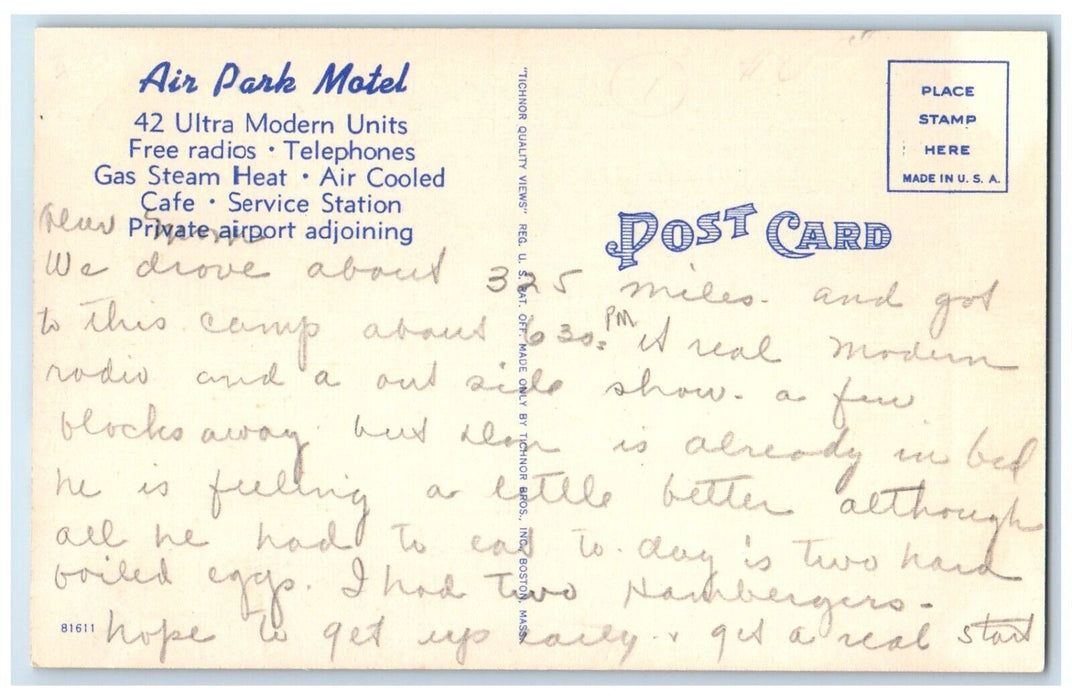 Air Park Motel
42 Ultra Modern Units
Free radios · Telephones
Gas Steam Heat · Air Cooled
Cafe · Service Station
Private airport adjoining
"TICHNOR QUALITY VIEWS" REG. U. S. PAT. OFF. MADE ONLY BY TICHNOR BROS., INC., BOSTON, MASS.
PLACE
STAMP
HERE
MADE IN U. S. A.
POST CARD
Dear
We drove about 325 miles. and got
to this camp about 630. PM it real modern
radio and a out side show. a few
blocks away but is already in bed
he is feeling a little better although
all he had to eat to. day is two hard
boiled eggs. I had two Hambergers.
hope to get up early & get a real start
81611